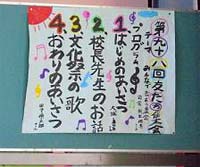 第九十八回友だち集会
テーマ
プログラム
1 はじめのあいさつ
2 校長先生のお話
3. 文化祭の歌
4. おわりのあいさつ